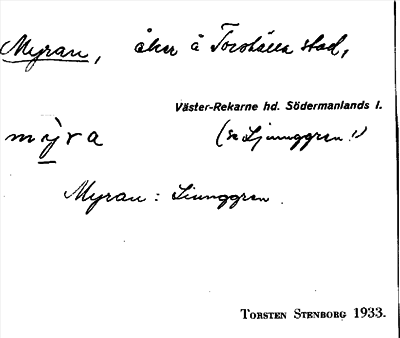 Myran, åker å Torshälla stad,
Väster-Rekarne hd. Södermanlands l.
mỳra (se Ljunggren!)
Myran: Ljunggren.
TORSTEN STENBORG 1933.